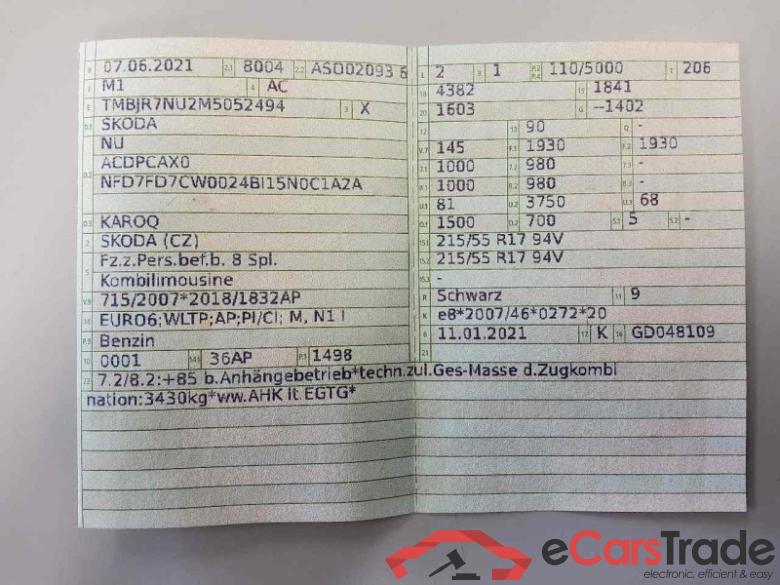 B 07.06.2021 2.1 8004 2.2 ASO02093 6
J M1 4 AC
E TMBJR7NU2M5052494 3 X
D.1 SKODA
NU
D.2 ACDPCAX0
NFD7FD7CW0024BI15N0C1A2A
D.3 KAROQ
2 SKODA (CZ)
5 Fz.z.Pers.bef.b. 8 Spl.
Kombilimousine
V.9 715/2007*2018/1832AP
14 EURO6;WLTP;AP;PI/CI; M, N1 I
P.3 Benzin
10 0001 14.1 36AP P.1 1498
22 7.2/8.2:+85 b.Anhängebetrieb*techn.zul.Ges-Masse d.Zugkombi
nation:3430kg*ww.AHK lt.EGTG*
L 2 9 1 P.2 P.4 110/5000 T 206
18 4382 19 1841
20 1603 G --1402
12 13 90 Q -
V.7 145 F.1 1930 F.2 1930
7.1 1000 7.2 980 7.3 -
8.1 1000 8.2 980 8.3 -
U.1 81 U.2 3750 U.3 68
O.1 1500 O.2 700 S.1 5 S.2 -
15.1 215/55 R17 94V
15.2 215/55 R17 94V
15.3 -
R Schwarz 11 9
K e8*2007/46*0272*20
6 11.01.2021 17 K 16 GD048109
21
eCarsTrade
electronic, efficient & easy